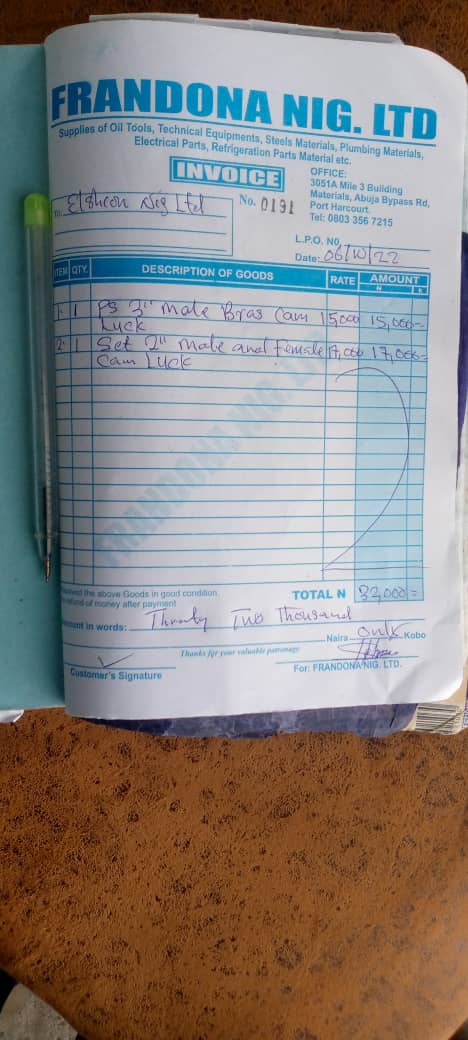 FRANDONA NIG. LTD
Supplies of Oil Tools, Technical Equipments, Steels Materials, Plumbing Materials,
Electrical Parts, Refrigeration Parts Material etc.
INVOICE
No. 0191
OFFICE:
3051A Mile 3 Building
Materials, Abuja Bypass Rd,
Port Harcourt.
Tel: 0803 356 7215
To: Nig Ltd
L.P.O. NO.
Date: 06/10/22
ITEM QTY. DESCRIPTION OF GOODS RATE AMOUNT
N K
1. 1 Ps 3" Male Bras Cam 15,000 15,000=
Luck
2. 1 Set 2" Male and Female 17,000 17,000=
Cam Luck
FRANDONA NIG. LTD
the above Goods in good condition.
refund of money after payment
TOTAL N 32,000=
in words: Two Thousand
Naira only Kobo
Thanks for your valuable patronage
Customer's Signature
For: FRANDONA NIG. LTD.